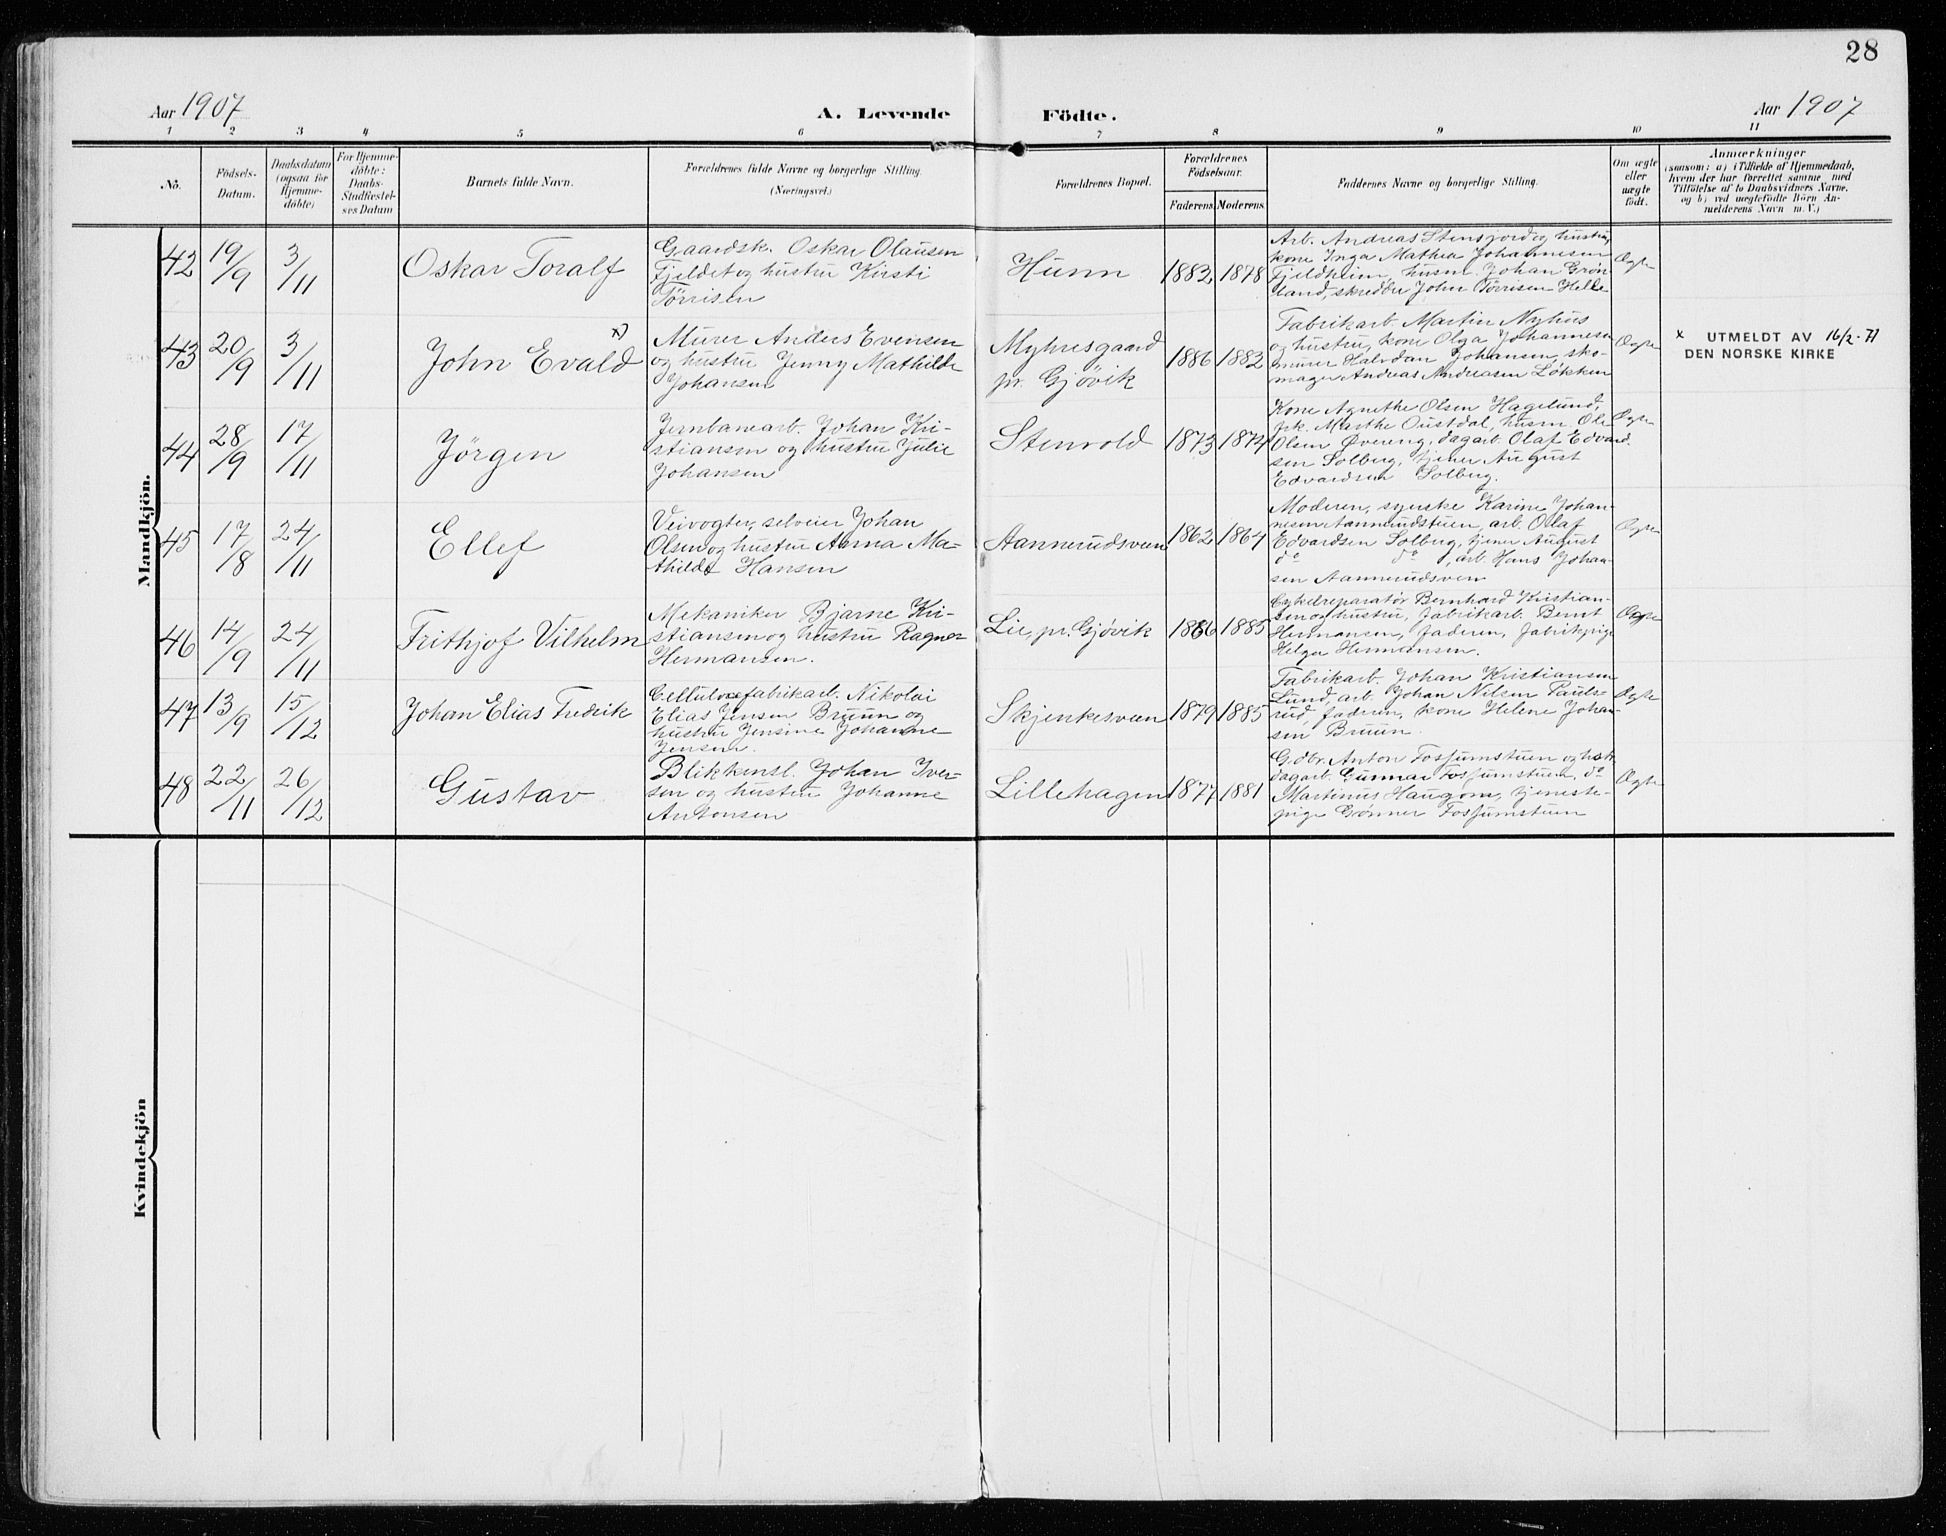 28
Aar 1907
A. Levende Födte.
Aar 1907
1 2 3 4 5 6 7 8 9 10 11
No.
Födsels-
Datum.
Daabsdatum
(ogsaa for
Hjemme-
döbte)
For Hjemme-
döbte:
Daabs-
Stadfæstel-
ses Datum
Barnets fulde Navn.
Forældrenes fulde Navne og borgerlige Stilling.
(Næringsvei.)
Forældrenes Bopæl.
Forældrenes
Födselsaar.
Faderens. Moderens.
Faddernes Navne og borgerlige Stilling.
Om ægte
eller
uægte
födt.
Anmærkninger
(saasom: a) i Tilfælde af Hjemmedaab,
hvem der har forrettet samme med
Tilföielse af to Daabsvidners Navne.
og b) ved uægtefödte Börn An-
melderens Navn m. V.)
Mandkjön.
42
19/9
3/11
Oskar Toralf
Gaardsk. Oskar Olausen
Fjeldet og hustru Kirsti
Tørrisen
Hunn
1883 1878
Arb. Andreas Stensjord og hustru,
kone Inga Mathea Johannesen
Fjeldheim, husm. Johan Grøn-
land, skrædder John Tørrisen Helle
Ægte
43
20/9
3/11
John Evald x)
Murer Anders Evensen
og hustru Jenny Mathilde
Johansen
Myhresgaard
pr. Gjøvik
1886 1882
Fabrikarb. Martin Nyhus
og hustru, kone Olga Johannesen
murer Halvdan Johansen, sko-
mager Andreas Andreasen Løkken
Ægte
x UTMELDT AV 16/2-71
DEN NORSKE KIRKE
44
28/9
17/11
Jörgen
Jernbanearb. Johan Kri-
stiansen og hustru Julie
Johansen
Stenvold
1873 1874
Kone Agnethe Olsen Hagelund,
pk. Marthe Oustdal, husm. Ole
Olsen Øvereng, dagarb. Olaf Edvard-
sen Solberg, tjener August
Edvardsen Solberg.
Ægte
45
17/8
24/11
Ellef
Veivogter, selveier Johan
Olsen og hustru Anna Ma-
thilde Hansen
Aannerudsveen
1862 1864
Moderen, syerske Karine Johan-
nesen Aannerudstuen, arb. Olaf
Edvardsen Solberg, tjener August
do do, arb. Hans Johan-
sen Aannerudsven
Ægte
46
14/9
24/11
Frithjof Vilhelm
Mekaniker Bjarne Kri-
stiansen og hustru Ragna
Hermansen.
Lie, pr. Gjøvik
1886 1885
Cykelreparatør Bernhard Kristian-
sen og hustru, fabrikarb. Bernt
Hermansen, faderen, fabrikpige
Helga Hermansen.
Ægte
47
13/9
15/12
Johan Elias Fredrik
Cellulosefabrikarb. Nikolai
Elias Jensen Bruun og
hustru Jensine Johanne
Jensen.
Skjenkesveen
1879 1885
Fabrikarb. Johan Kristiansen
Lund, arb. Johan Nilsen Pauls-
rud, faderen, kone Helene Johan-
sen Bruun.
Ægte
48
22/11
26/12
Gustav
Blikkensl. Johan Iver-
sen og hustru Johanne
Antonsen
Lillehagen
1877 1881
Gdbr. Anton Fosfumstuen og hustr.
dagarb. Gunnar Fosfumstuen, do
Martinus Haugom, tjeneste-
pige Gønner Fosfumstuen
Ægte
Kvindekjön